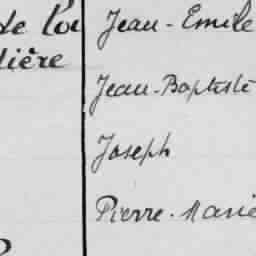 de la Jean-Emile
lière
Jean-Baptiste
Joseph
Pierre-Marie